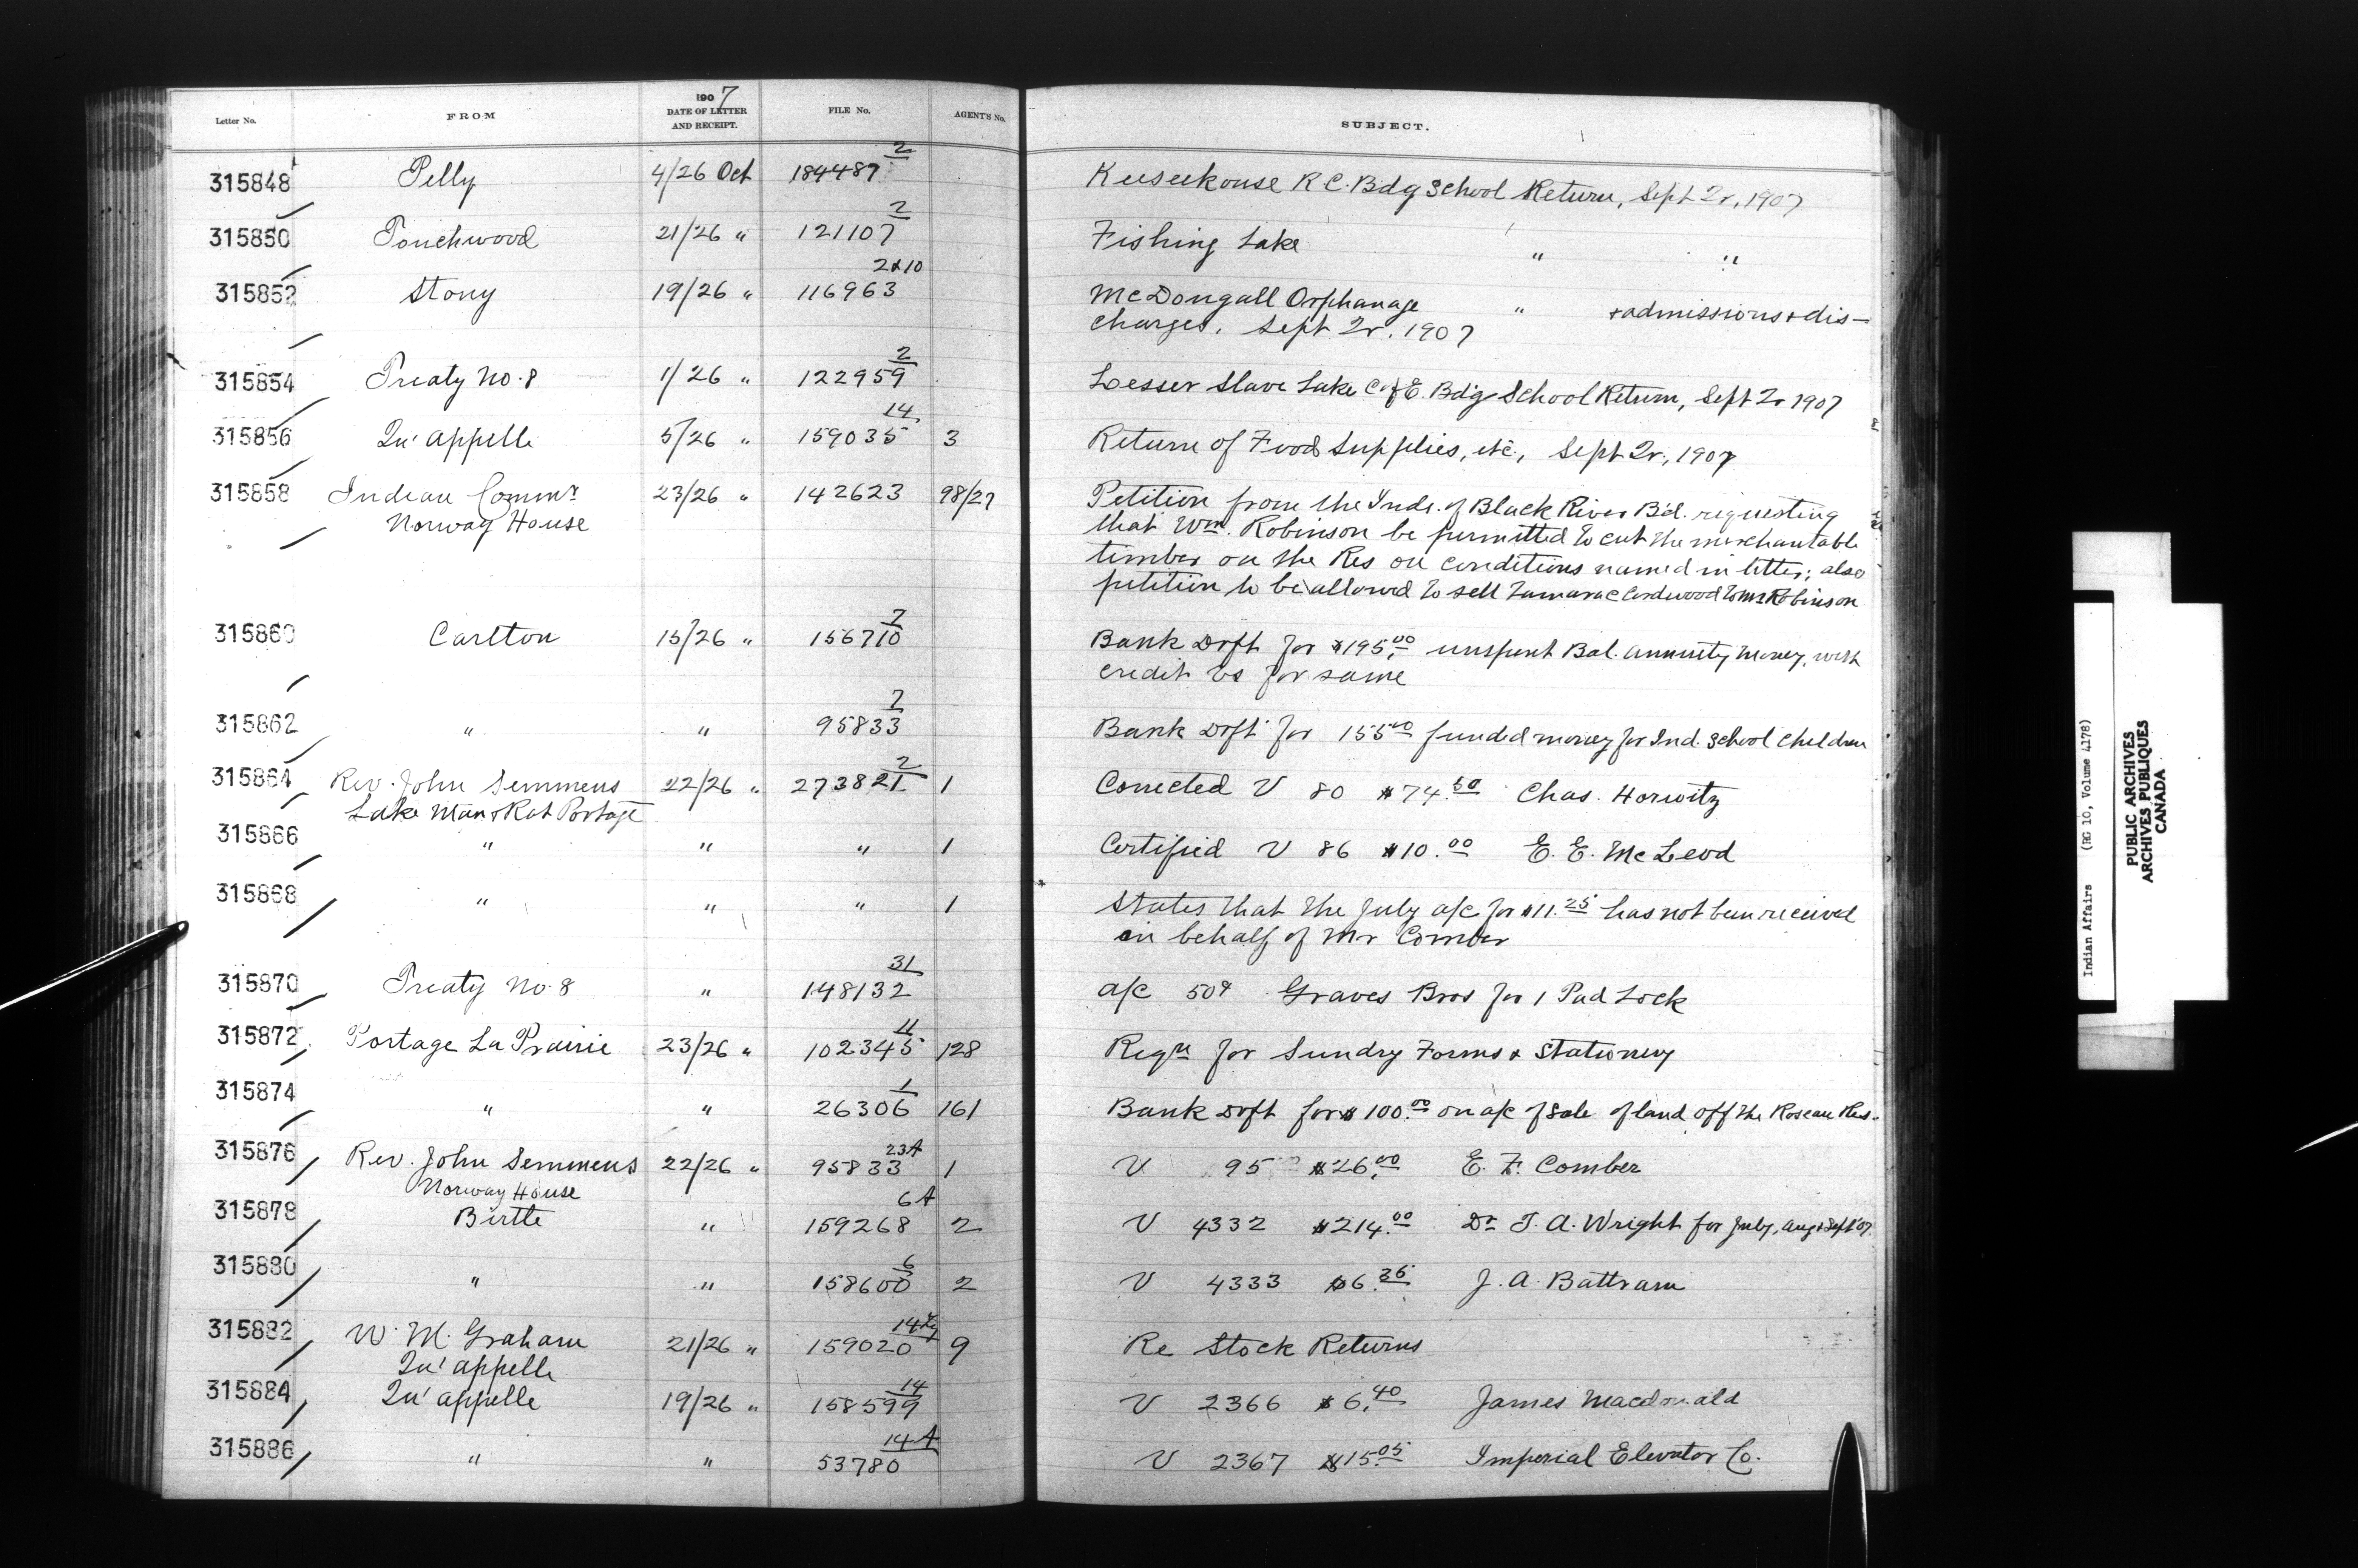 1907
Letter No. FROM DATE OF LETTER AND RECEIPT. FILE No. AGENT'S No. SUBJECT.
315848 Pelly 4/26 Oct 184487 2 Keeseekouse R C. Bdg School Return, Sept Qr, 1907
315850 Touchwood 21/26 " 121107 2 Fishing Lake " "
315852 Stony 19/26 " 116963 2&10 McDougall Orphanage " + admissions + dis-
charges, Sept Qr. 1907
315854 Treaty No. 8 1/26 " 122959 2 Lesser Slave Lake C of E. Bdg School Return, Sept Qr 1907
315856 Qu'appelle 5/26 " 159035 14 3 Return of Food Supplies, etc, Sept Qr, 1907
315858 Indian Commr 23/26 " 142623 98/27 Petition from the Inds. of Black River Bd. requesting
Norway House that Wm. Robinson be permitted to cut the merchantable
timber on the Res on conditions named in letter; also
petition to be allowed to sell Tamarac Cordwood to Mr Robinson
315860 Carlton 15/26 " 156710 2 Bank Drft for $195.00 unspent Bal. annuity money, with
credit vo for same
315862 " " 95833 2 Bank Drft for 155.00 funded money for Ind. School children
315864 Rev. John Semmens 22/26 " 273821 2 1 Corrected V 80 $74.50 Chas. Horwitz
Lake Man & Rat Portage
315866 " " " 1 Certified V 86 $10.00 E. E. McLeod
315868 " " " 1 States that the July a/c for $11.25 has not been received
on behalf of Mr Comber
315870 Treaty No. 8 " 148132 31 a/c 50¢ Graves Bros for 1 Pad Lock
315872 Portage La Prairie 23/26 " 102345 11 128 Reqn for Sundry Forms & Stationery
315874 " " 26306 1 161 Bank Drft for $100.00 on a/c of sale of land off the Roseau Res.
315876 Rev. John Semmens 22/26 " 95833 23A 1 V 95 $26.00 E. F. Comber
Norway House
315878 Birtle " 159268 6A 2 V 4332 $214.00 Dr T. A. Wright for July, Aug & Sept '07
315880 " " 158600 6 2 V 4333 $6.35 J. A. Battram
315882 W. M. Graham 21/26 " 159020 14 9 Re Stock Returns
Qu'appelle
315884 Qu'appelle 19/26 " 158599 14 V 2366 $6.40 James Macdonald
315886 " " 53780 14A V 2367 $15.05 Imperial Elevator Co.
Indian Affairs (RG 10, Volume 4178)
PUBLIC ARCHIVES
ARCHIVES PUBLIQUES
CANADA